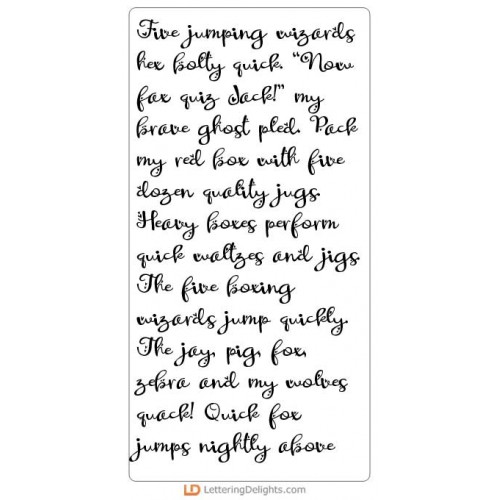 Five jumping wizards
hex bolty quick. "Now
fax quiz Jack!" my
brave ghost pled. Pack
my red box with five
dozen quality jugs.
Heavy boxes perform
quick waltzes and jigs.
The five boxing
wizards jump quickly.
The jay, pig, fox,
zebra and my wolves
quack! Quick fox
jumps nightly above
LD LetteringDelights.com